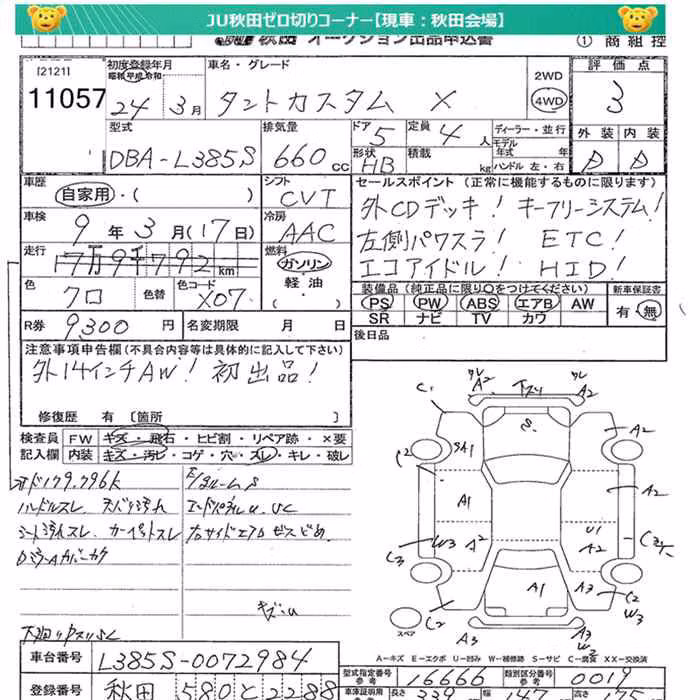 JU秋田ゼロ切りコーナー【現車：秋田会場】
秋田 オークション出品申込書 ① 商組控
[2121] 11057
初度登録年月 昭和 平成 令和 24年 3月
車名・グレード タントカスタム X
2WD 4WD
評価点 3
外装 D 内装 D
型式 DBA-L385S
排気量 660cc
ドア 5 定員 4人
形状 HB 積載 kg
ディーラー・並行
モデル年式 年式
ハンドル 左・右
車歴 自家用・( )
シフト CVT
セールスポイント (正常に機能するものに限ります)
外CDデッキ! キーフリーシステム!
左側パワスラ! ETC!
エコアイドル! HID!
車検 9年3月(17日)
冷房 AAC
走行 17万9千792km
燃料 ガソリン・軽油・( )
色 クロ 色替 色コード X07
装備品 (純正品に限り○をつけてください)
PS PW ABS エアB AW
SR ナビ TV カワ
新車保証書 有・無
R券 9,300円 名変期限 月 日
後日品
注意事項申告欄 (不具合内容等は具体的に記入して下さい)
外14インチAW! 初出品!
修復歴 有 [箇所 ]
検査員記入欄
FW キズ・飛石・ヒビ割・リペア跡・×要
内装 キズ・汚レ・コゲ・穴・スレ・キレ・破レ
179,796K
ハンドルスレ 天バリ汚れ
シート汚れスレ カーペットスレ
DミラーAカバーカケ
エンジンルームS
エンドパネルU UC
右サイドエアロビスどめ
キズ・U
下回り
C1 A2 A2 下スリ
S A2
C2 SA1 A2
A1 U1 A2
W3 C3
C3 A1 A1 C2 W3
C2 A3 A3 W2
スペア
A-キズ E-エクボ U-凹み W-補修跡 S-サビ C-腐食 XX-交換済
車台番号 L385S-0072984
登録番号 秋田 580 と 2288
型式指定番号 参考 16666
類別区分番号 参考 0019
車庫証明用 長さ 339